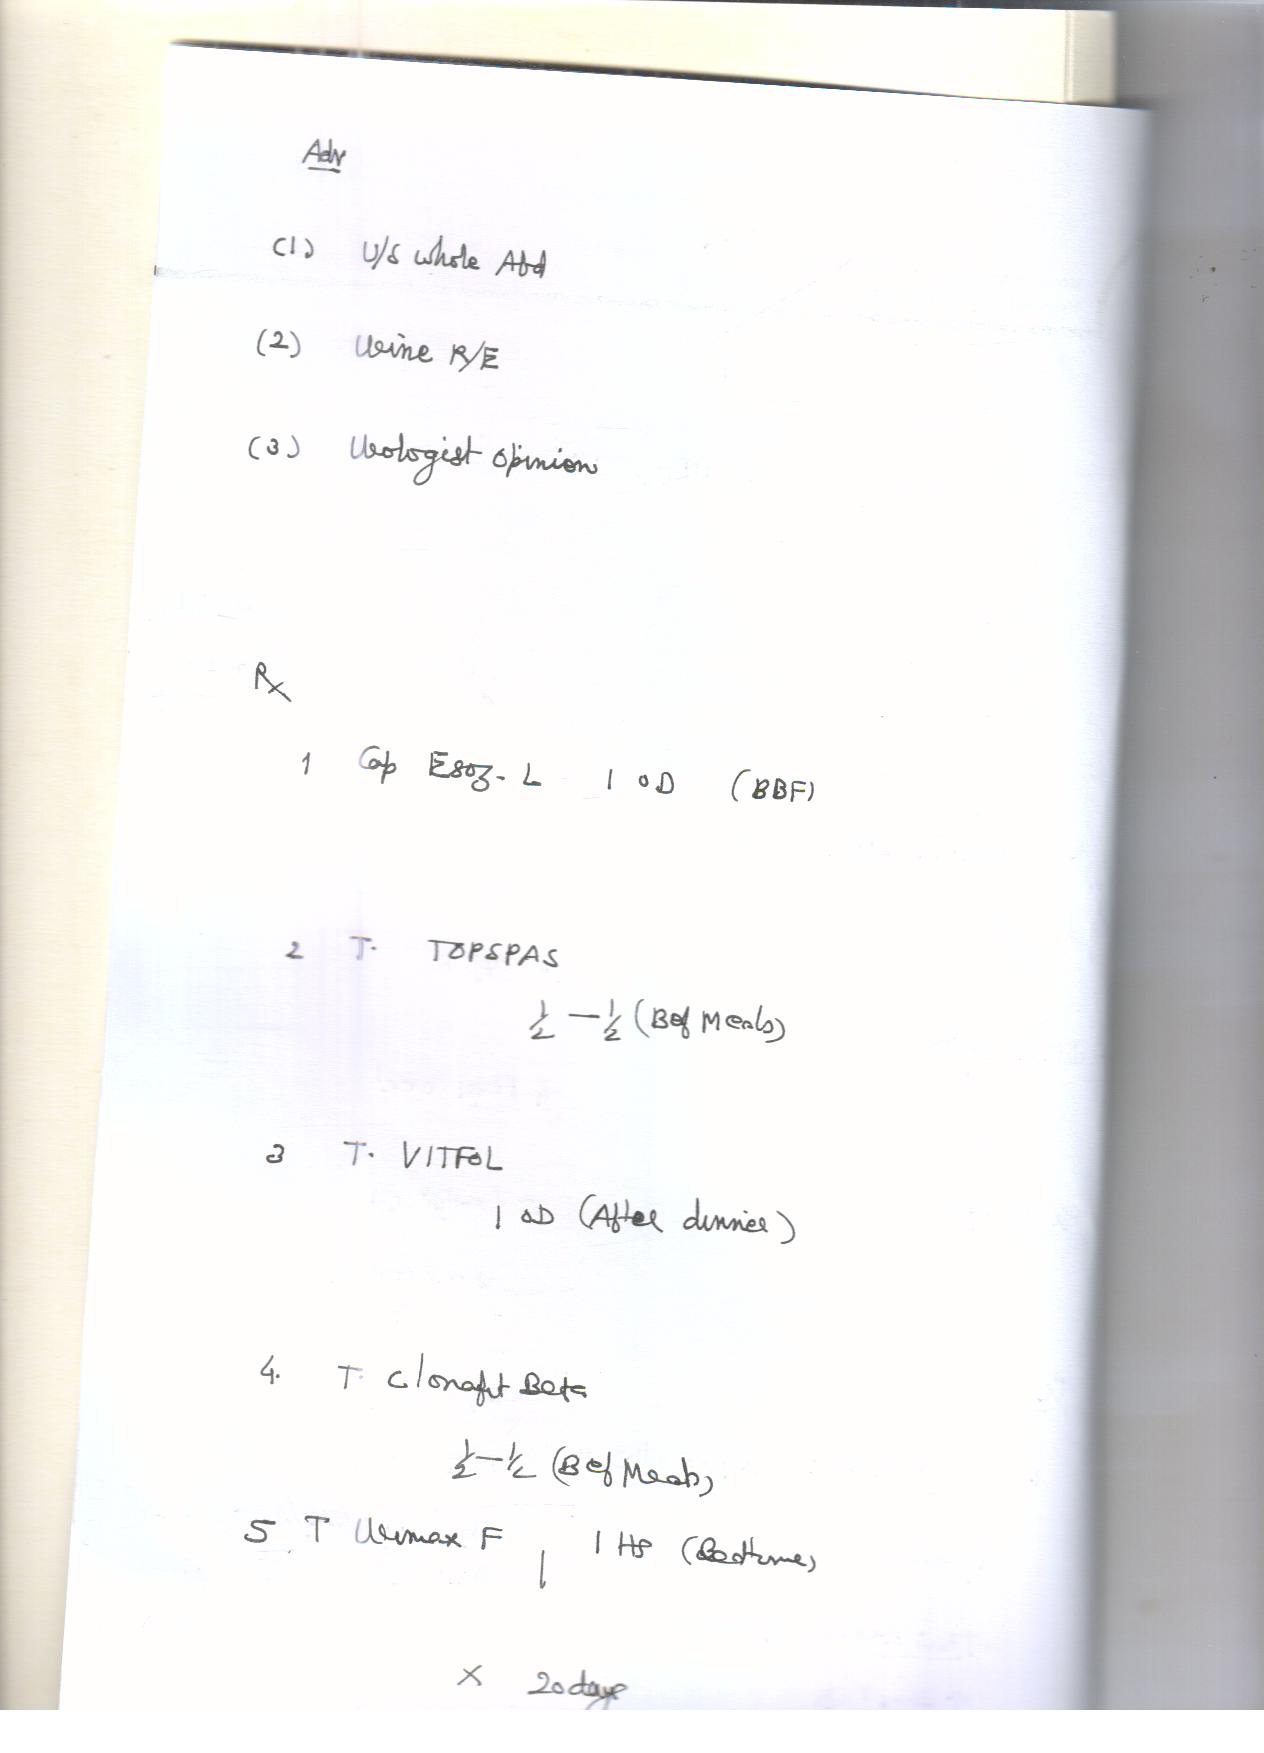 Adv
(1) U/S whole Abd
(2) Urine R/E
(3) Urologist opinion
Rx
1 Cap Esoz-L 1 OD (BBF)
2 T. TOPSPAS
½ – ½ (Bef Meals)
3 T. VITFOL
1 OD (After dinner)
4. T. Clonafit Beta
½ – ½ (Bef Meals)
5 T Urimax F 1 HS (Bedtime)
x 20 days